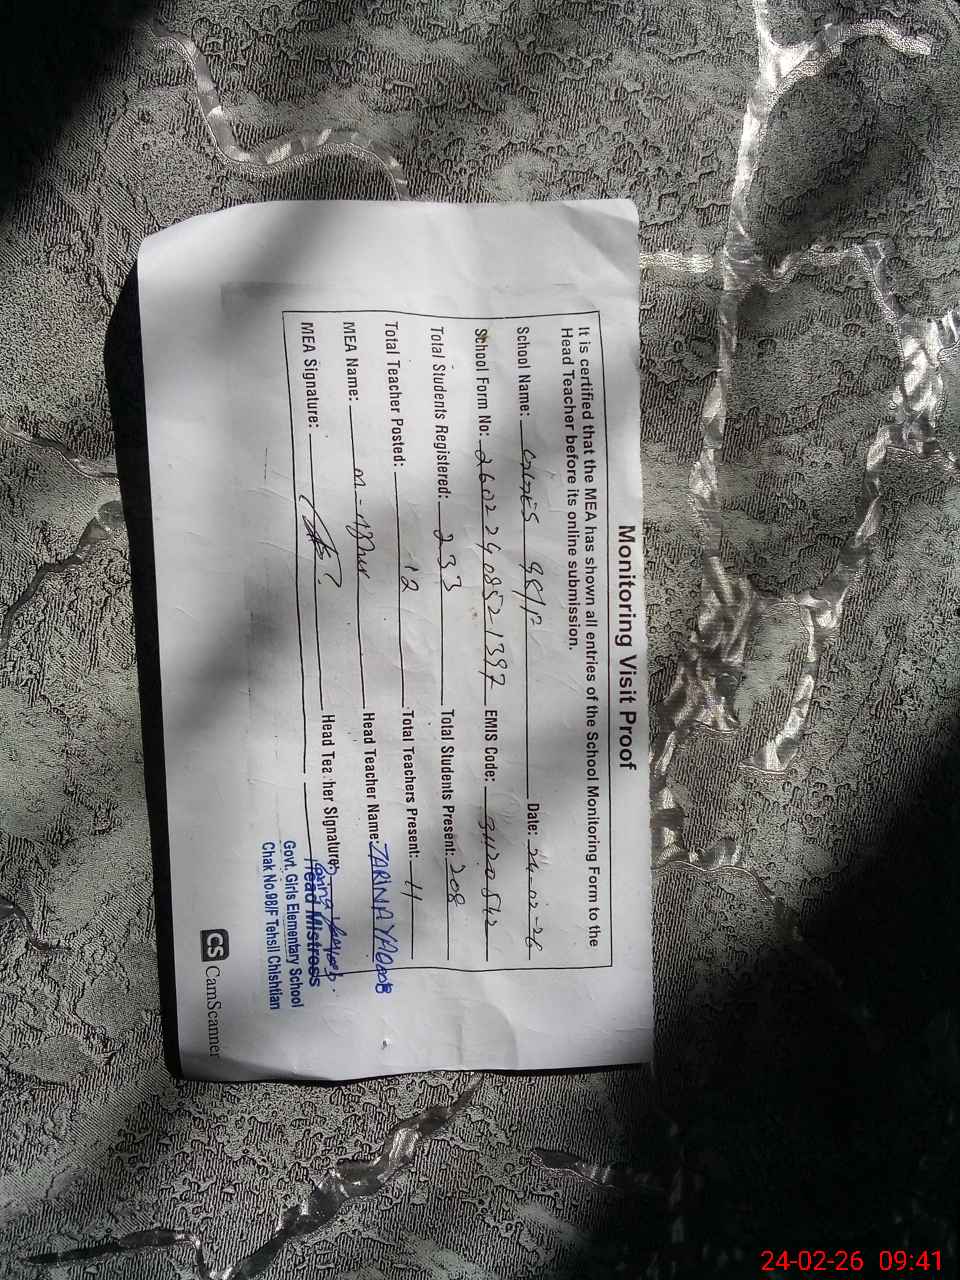 Monitoring Visit Proof
It is certified that the MEA has shown all entries of the School Monitoring Form to the
Head Teacher before its online submission.
School Name: GGES 98/F Date: 24-02-26
School Form No: EMIS Code:
Total Students Registered: 233 Total Students Present: 208
Total Teacher Posted: 12 Total Teachers Present: 11
MEA Name: Head Teacher Name: ZARINA YAQOOB
MEA Signature: Head Teacher Signature:
Head Mistress
Govt. Girls Elementary School
Chak No.98/F Tehsil Chishtian
CS CamScanner
24-02-26 09:41